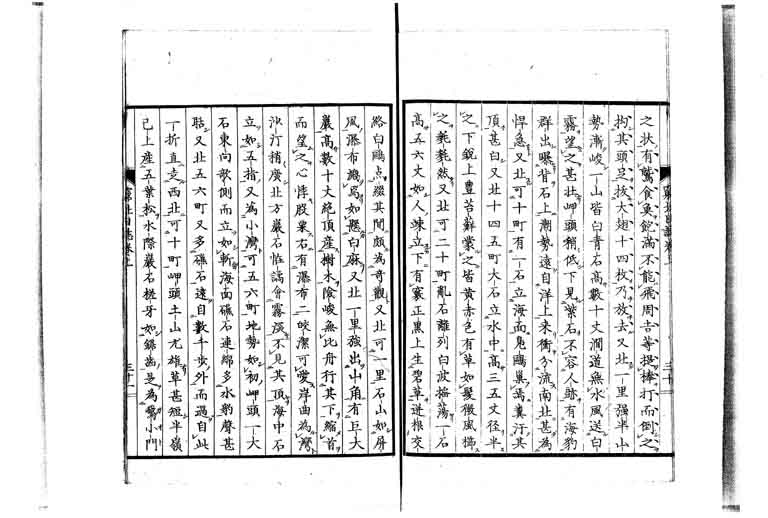 之狀有鷲食魚飽滿不能飛周吉等提棒打而倒之
拘其頭足拔大翅十四枚乃放去又北一里强半山
勢漸峻一山皆白青石高數十丈澗道無水風送白
霧望之甚壯岬頭稍低下見紫石不容人跡有海豹
群出曝背石上潮勢遠自洋上來衝分流南北甚為
悍急又北可十町有一石立海面見鷗巢萬糞汙其
頂甚白又北十四五町大石立水中高三五丈徑半
之下銳上豐苔蘚蒙之皆黃赤色有草如髮微風梯
之毿毿然又北可二十町亂石離列白波搖蕩一石
高五六丈如人竦立下有竅正黑上生碧草逆根交
絡白鷗点綴其間頗為奇觀又北可一里石山如屏
風瀑布濺焉如懸白麻又北一里强出山角有巨大
巖高數十丈絕頂產樹木險峻無比舟行其下縮首
而望之心悸股栗右有瀑布二皎潔可愛岸曲為灣
沙汀稍廣北方巖石恠譎會霧深不見其頂海中石
立如五指又為小灣可五六町地勢如初岬頭一大
石東向欹側而立如斬海面礁石連綿多水豹聲甚
聒又北五六町又多礁石遠自數千步外而過自此
一折直支西北可十町岬頭土山尤雄草甚短半嶺
已上產五葉松水際巖石槎牙如鋸齒是為鷲小門
三十
三十一